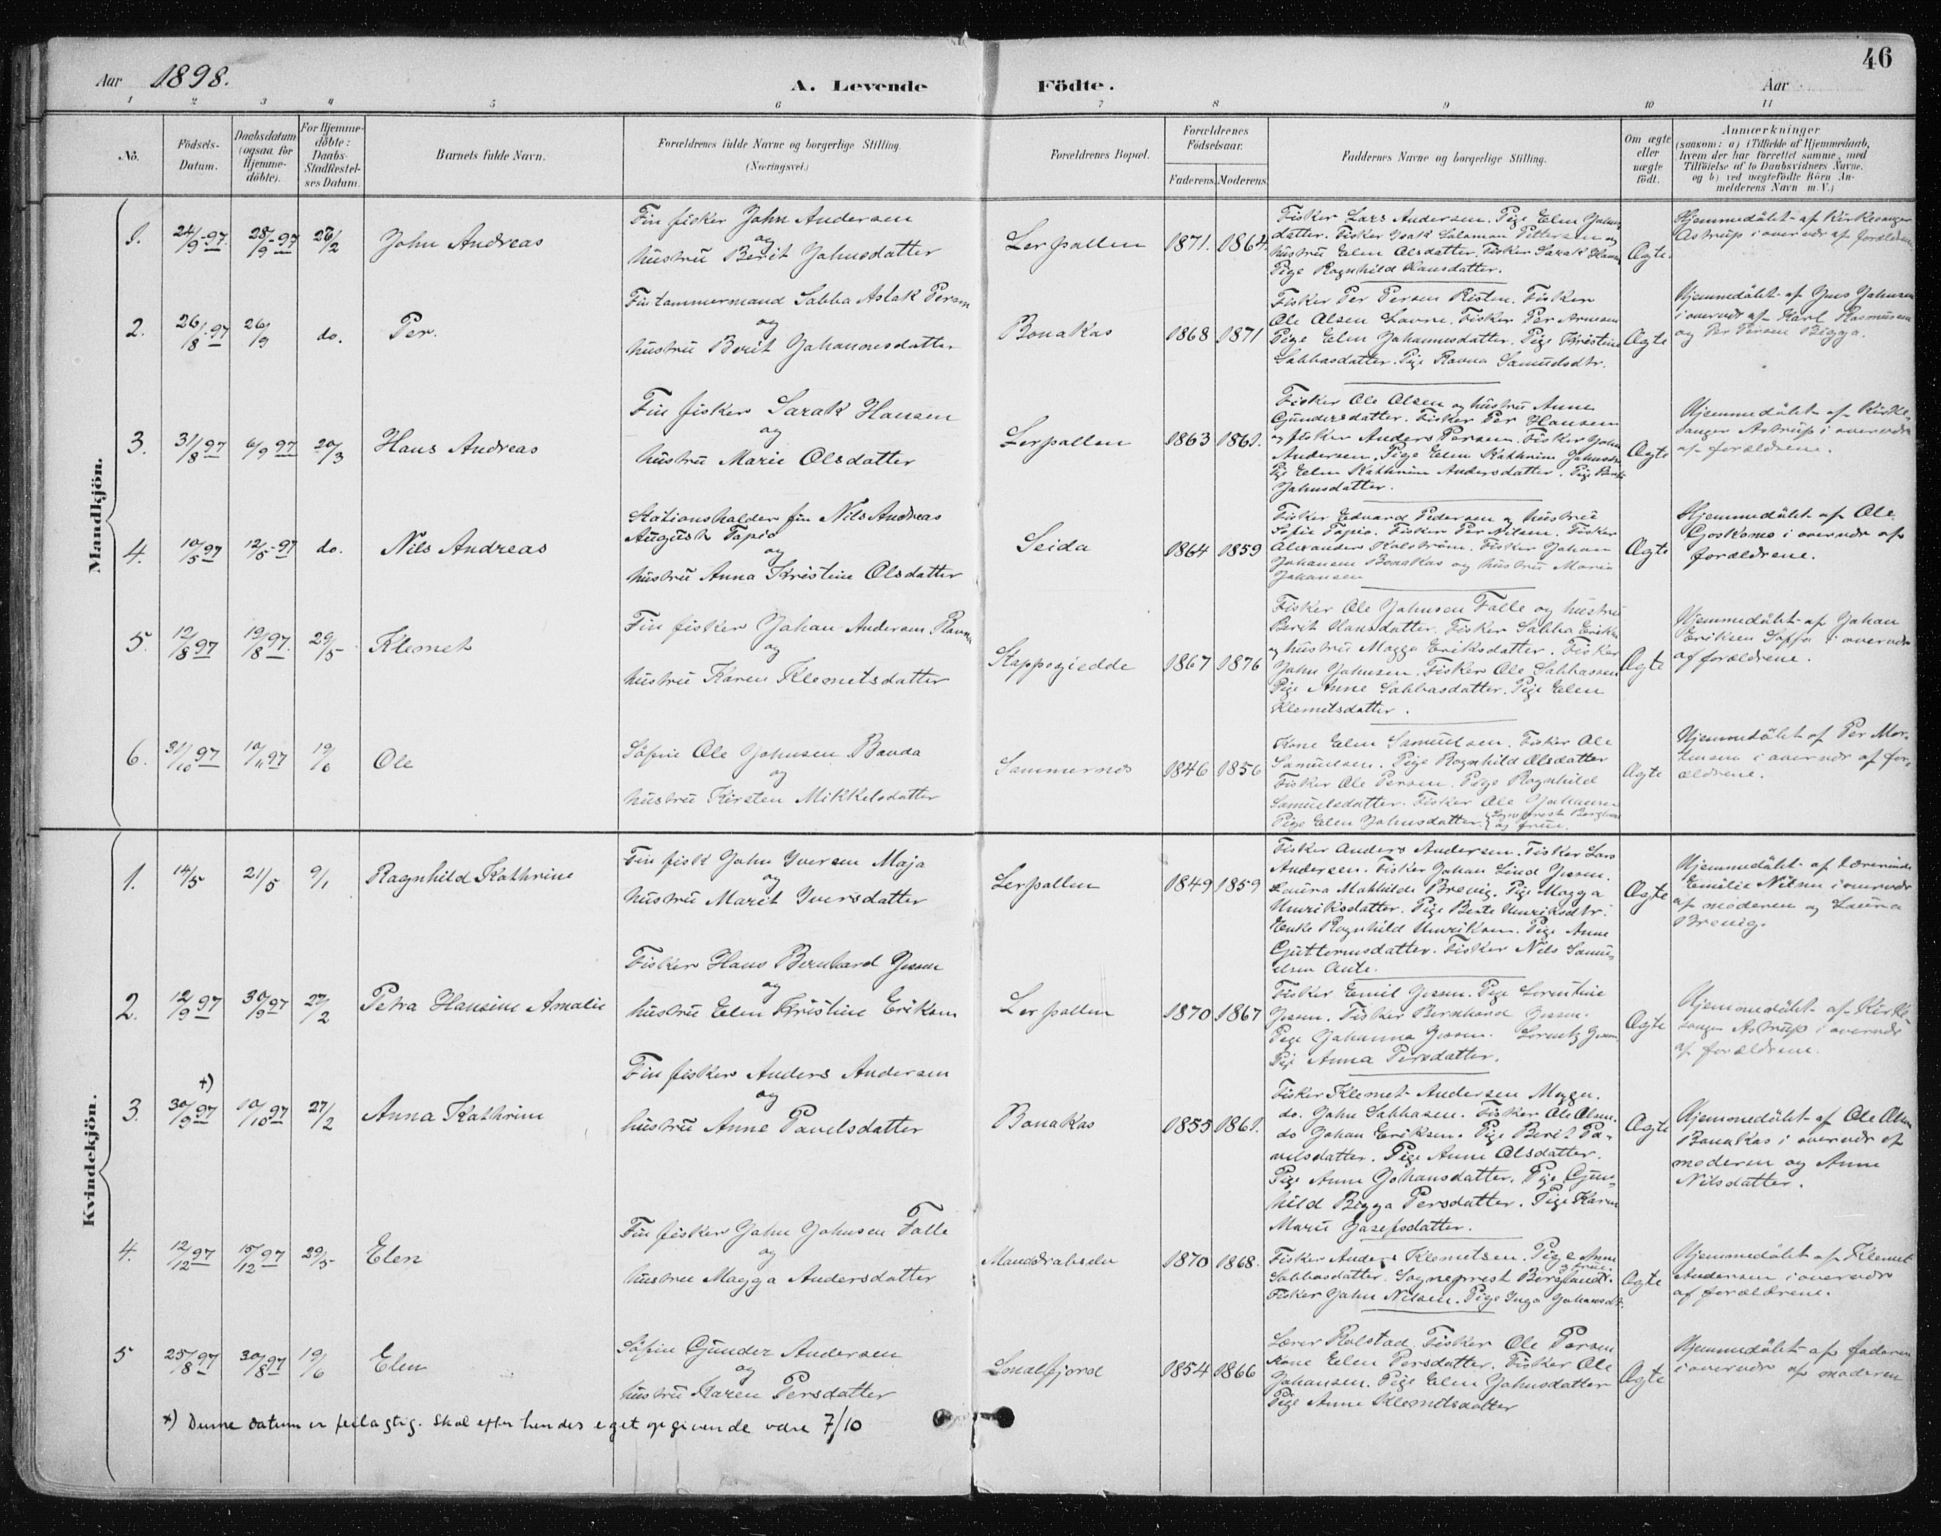 46
Aar 1898. A. Levende Födte. Aar
1 2 3 4 5 6 7 8 9 10 11
No.
Födsels-Datum.
Daabsdatum (ogsaa for Hjemme-döbte).
For Hjemme-döbte: Daabs-Stadfæstel-ses Datum.
Barnets fulde Navn.
Forældrenes fulde Navne og borgerlige Stilling. (Næringsvei.)
Forældrenes Bopæl.
Forældrenes Födselsaar.
Faderens. Moderens.
Faddernes Navne og borgerlige Stilling.
Om ægte eller uægte födt.
Anmærkninger
(saasom: a) i Tilfælde af Hjemmedaab,
hvem der har forrettet samme, med
Tilföielse af to Daabsvidners Navne,
og b) ved uægtefödte Börn An-
melderens Navn m. V.)
Mandkjön.
1. 24/9-97. 28/9-97 28/2 John Andreas
Fin fisker John Andersen
og
hustru Berit Johnsdatter
Lerpollen 1871. 1864.
Fisker Lars Andersen. Pige Elen Johns
datter. Fisker Isak Salamon Pettersen og
hustru Elen Olsdatter. Fisker Sarak Hansen
Pige Ragnhild Hansdatter.
Ægte.
Hjemmedöbt af Kirkesanger
Astrup i overvær af forældrene
2. 26/8-97 26/9 do. Per.
Fin tømmermand Sabba Aslak Persen
og
hustru Berit Johannesdatter
Bonakas 1868 1871
Fisker Per Persen Risten. Fisker
Ole Olsen Lavre. Fisker Per Arnesen
Pige Elen Johannesdatter. Pige Kristine
Sabbasdatter. Pige Ravna Samuelsdtr.
Ægte
Hjemmedöbt af Jens Johnsen
i overvær af Karl Rasmussen
og Per Persen Bigga.
3. 31/8 97 6/9 97 20/3 Hans Andreas
Fin fisker Sarak Hansen
og
hustru Marie Olsdatter
Lerpollen 1863 1861.
Fisker Ole Olsen og hustru Anne
Gundersdatter. Fisker Per Hansen
og fisker Anders Persen. Fisker John
Andersen. Pige Elen Kathrine Johnsdtr
Pige Elen Kathrine Andersdatter. Pige Berit
Johnsdatter.
Ægte
Hjemmedöbt af Kirke-
sanger Astrup i overvær
af forældrene.
4. 10/5 97 12/5-97 do. Nils Andreas
Stationsholder fin Nils Andreas
August Tapio
og
hustru Anna Kristine Olsdatter
Seida 1864 1859
Fisker Edvard Pedersen og hustru
Sofie Tapio. Fisker Per Nilsen. Fisker
Alexander Kalström. Fisker Johan
Johansen Bonakas og hustru Maria
Johansen
Ægte
Hjemmedöbt af Ole
Gjoskomo i overvær af
forældrene.
5. 12/8 97 19/8 97. 29/5 Klemet
Fin fisker Johan Andersen Ravna
og
hustru Karen Klemetsdatter
Stappogiedde 1867 1876
Fisker Ole Johnsen Falle og hustru
Berit Hansdatter. Fisker Sabba Eriksen
og hustru Magga Eriksdatter. Fisker
John Johnsen. Fisker Ole Sabbasen
Pige Anne Sabbasdatter. Pige Elen
Klemetsdatter.
Ægte
Hjemmedöbt af Johan
Eriksen i overvær
af forældrene.
6. 31/10 97 10/11 97 19/6 Ole
Söfin Ole Johnsen Banda
og
hustru Kirsten Mikkelsdatter
Sammernes 1846 1856
Kone Elen Samuelsen. Fisker Ole
Samuelsen. Pige Ragnhild Olsdatter
Fisker Ole Persen. Pige Ragnhild
Samuelsdatter. Fisker Ole Johansen
Pige Elen Johnsdatter. Sogneprest Berglund
og frue.
Ægte
Hjemmedöbt af Per Mor-
tensen i overvær af for-
ældrene.
Kvindekjön.
1. 14/5 21/5 9/1 Ragnhild Kathrine
Fin fisk John Iversen Maja
og
hustru Marit Iversdatter
Lerpollen 1849 1859
Fisker Anders Andersen. Fisker Lars
Andersen. Fisker Johan Lind Jessen.
Laura Mathilde Brevig. Pige Magga
Henriksdatter. Pige Berte Henriksdtr.
Enke Ragnhild Henriksen. Pige Anne
Guttormsdatter. Fisker Nils Samu-
elsen Ante.
Ægte
Hjemmedöbt af Lærerinde
Emilie Nilsen i overvær
af moderen og Laura
Brevig.
2. 12/9 97 30/9 97 27/2 Petra Hansine Amalie
Fisker Hans Bernhard Jessen
og
hustru Elen Kristine Eriksen
Lerpollen 1870 1867
Fisker Emil Jessen. Pige Lorentine
Jessen. Fisker Bernhard Jessen.
Pige Johanna Jessen. Lorentz Jessen
Pige Anna Persdatter.
Ægte
Hjemmedöbt af Kirke-
sanger Astrup i overvær
af forældrene.
3. +) 30/9 97 10/10 97 27/2 Anna Kathrine
Fin fisker Anders Andersen
og
hustru Anne Pavelsdatter
Bonakas 1855 1861.
Fisker Klemet Andersen Magga.
do. John Sabbasen. Fisker Ole Olsen.
do Johan Eriksen. Pige Berit Pa-
velsdatter. Pige Anne Olsdatter.
Pige Anne Johansdatter. Pige Gun-
hild Bigga Persdatter. Pige Karen
Marie Josefsdatter.
Ægte
Hjemmedöbt af Ole Olsen
Bonakas i overvær af
moderen og Anne
Nilsdatter.
4. 12/12 97 15/12 97 29/5 Elen
Fin fisker John Johnsen Falle
og
hustru Magga Andersdatter
1870 1868.
Fisker Anders Klemetsen. Pige Anne
Sabbasdatter. Sogneprest Berglund og frue.
Fisker John Nilsen. Pige Inga Johansdtr.
Ægte
Hjemmedöbt af Klemet
Andersen i overvær
af forældrene.
5 25/8 97 30/8 97 19/6 Elen
Söfin Gunder Andersen
og
hustru Karen Persdatter
Smalfjord 1854 1866
Lærer Rolstad. Fisker Ole Persen
Kone Elen Persdatter. Fisker Ole
Johansen. Pige Elen Johnsdatter
Pige Anne Klemetsdatter
Ægte
Hjemmedöbt af faderen
i overvær af moderen
+) Denne datum er feilagtig. Skal efter hendes eget opgivende være 7/10